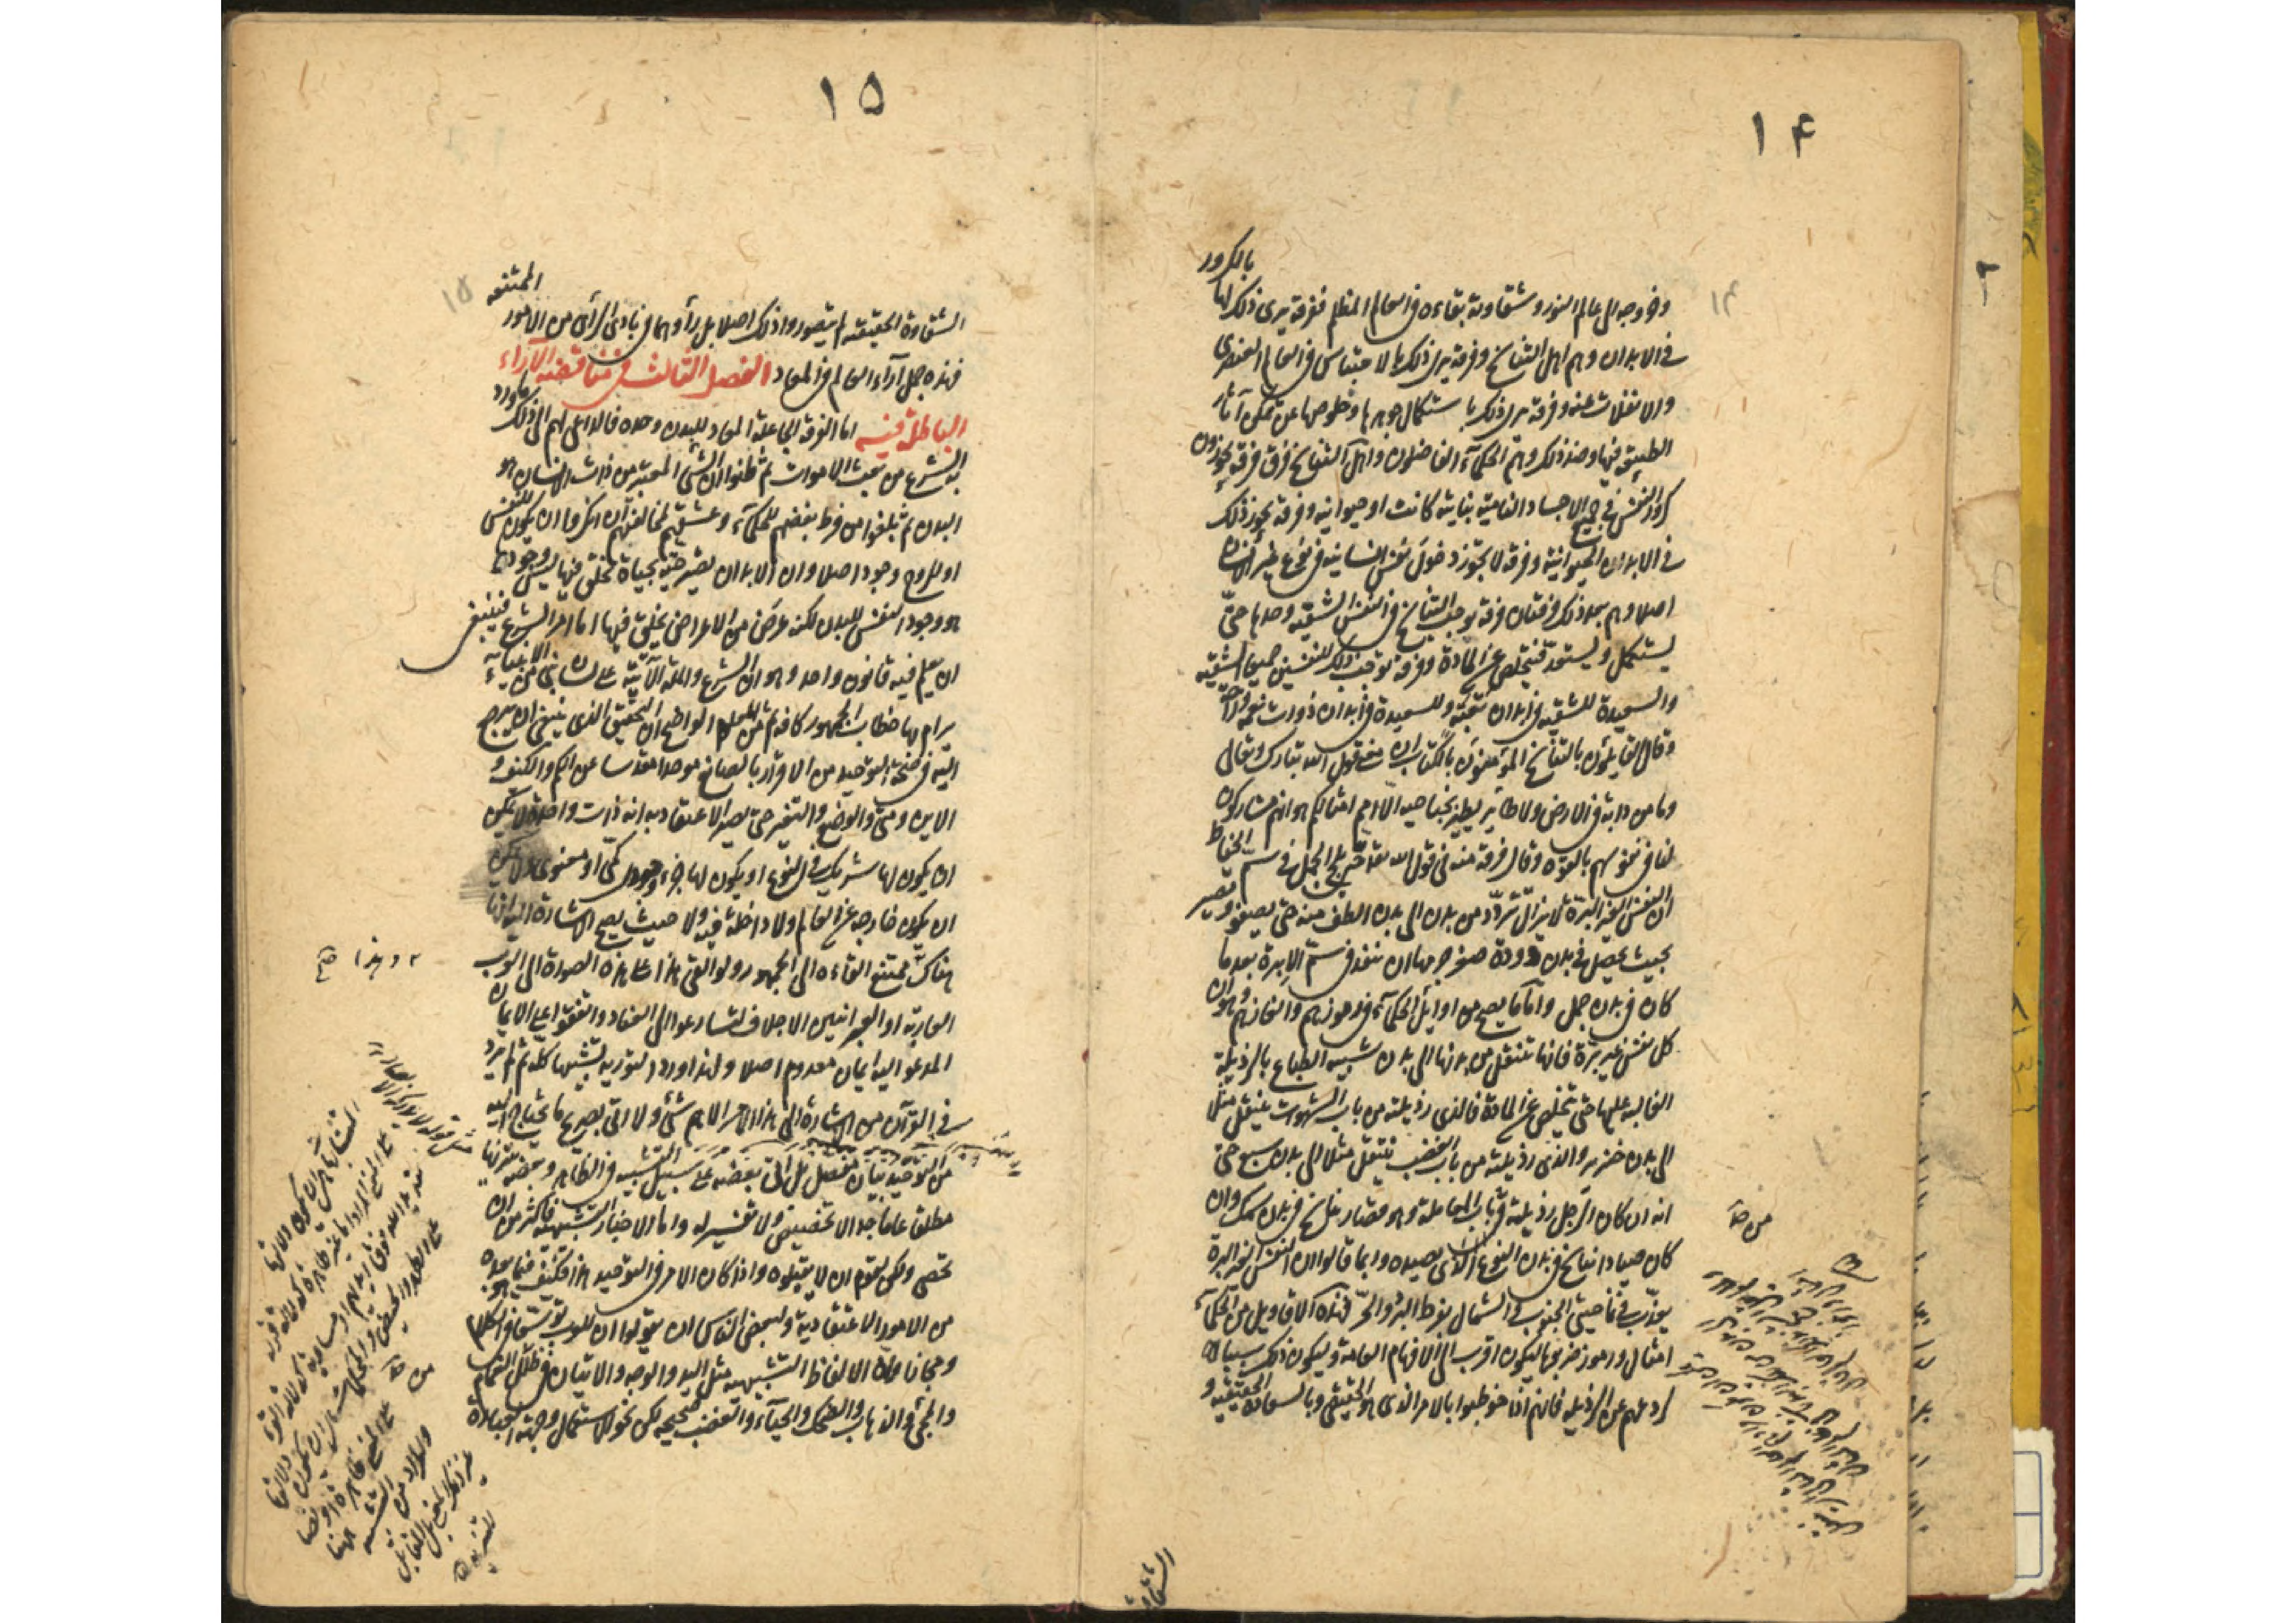 ١۴
بالكرور
وخروجه الى عالم النور وشقاوته بقاءه فى العالم المظلم ففرقة يرى ذلك لها
فى الابدان وهم اهل التناسخ وفرقة يرى ذلك بالاحتباس فى العالم العنصرى
والانفلات عنه وفرقة يرى ذلك باستكمال جوهرها وخلوصها عن تمكن آثار
الطبيعة فيها وضد ذلك وهم الحكماء الفاضلون واهل التناسخ فرق فرقة يجوزون
كرور النفس فى جميع الاجساد النامية نباتية كانت او حيوانية وفرقة يجوز ذلك
فى الابدان الحيوانية وفرقة لا يجوز دخول نفس انسانية فى نوع غير الانسان
اصلا وهم بعد ذلك فرقتان فرقة توجب التناسخ فى النفس الشقية وحدها حتى
يستكمل ويستعد فيتخلص عن المادة وفرقة توجب ذلك للنفسين جميعا الشقية
والسعيدة للشقية فى ابدان تعبة وللسعيدة فى ابدان ذوات نعمة وراحة
وقال القايلون بالتناسخ المؤمنون بالكتاب ان معنى قول الله تبارك وتعالى
وما من دابة فى الارض ولا طاير يطير بجناحيه الا امم امثالكم هو انهم مشاركون
لنا فى نفوسهم بالقوة وقال فرقة منه فى قول الله تعالى حتى يلج الجمل فى سم الخياط
ان النفس الغير البرة لا يزال تتردد من بدن الى بدن الطف منه حتى يصفو وتصير
بحيث يحصل فى بدن دودة صغر جرمها ان تنفذ فى سم الابرة بعد ما
كان فى بدن جمل واما ما يصح من اوايل الحكماء فى رموزهم والغازهم وهو ان
كل نفس غير برة فانها تنتقل من بدنها الى بدن شبيه الطباع بالرذيلة
الغالبة عليها حتى يتخلص عن المادة فالذى رذيلته من باب الشهوات ينتقل مثلا
الى بدن خنزير والذى رذيلته من باب الغضب تنتقل مثلا الى بدن سبع حتى
انه ان كان الرجل رذيلته فى باب المعاملة وهو قصار تناسخ فى بدن سمك وان
كان صيادا تناسخ فى بدن النوع الذى يصيده وانما قالوا ان النفس الغير البرة
يعذب فى ناحيتى الجنوب والشمال بفرط البرد والحر فهذه الاقاويل من الحكماء
امثال ورموز ضربوها ليكون اقرب الى الافهام العامة ويكون ذلك سببا
لردعهم عن الرذيلة فانهم اذا خوطبوا بالامر الذى هو الحقيقى وبالسعادة الحقيقية و
الشقاوة
١۵
الممتنعه
الشقاوة الحقيقية لم يتصوروا ذلك اصلا بل رأوها فى بادى الرأى من الامور
فهذه جمل آراء العالم فى المعاد الفصل الثالث فى مناقضة الآراء
الباطلة فيه اما الفرقة الجاعلة المعاد للبدن وحده فالداعى لهم الى ذلك ما ورد
به الشرع من بعث الاموات ثم ظنوا ان الشئ المعتبر من ذات الانسان هو
البدن ثم بلغوا من فرط بغضهم للحكماء وعشقهم لمخالفتهم ان انكروا ان يكون للنفس
او للروح وجود اصلا وان الابدان يصير حية بحياة تخلق فيها ليس وجودها
هو وجود النفس للبدن لكنه عرض من الاعراض يخلق فيها اما امر الشرع فينبغى
ان يعلم فيه قانون واحد وهو ان الشرع والملة الآتية على لسان نبى من الانبياء
يرام بها خطاب الجمهور كافة ثم من المعلوم الواضح ان التحقيق الذى ينبغى ان يرجع
اليه فى صحة التوحيد من الاقرار بالصانع موحدا مقدسا عن الكم والكيف و
الاين ومتى والوضع والتغير حتى يصير الاعتقاد به انه ذات واحدة لا يمكن
ان يكون لها شريك فى النوع او يكون لها جزء وجودى كمى او معنوى ولا يمكن
ان يكون خارجه عن العالم ولا داخله فيه ولا حيث يصح الاشارة اليه انها
هناك ممتنع القاءه الى الجمهور ولو القى هذا على هذه الصورة الى العرب
العاربة او العبرانيين الاجلاف لتسارعوا الى العناد واتفقوا على ان الايمان
المدعو اليه ايمان بمعدوم اصلا ولهذا ورد التورية تشبيها كله ثم لم يرد
فى القرآن من الاشارة الى هذا الامر الاهم شئ ولا اتى بصريح ما يحتاج اليه
من التوحيد بيان مفصل بل اتى بعضه على سبيل التشبيه فى الظاهر وبعضه تنزيها
مطلقا عاما جدا لا تخصيص ولا تفسير له واما الاخبار التشبيهية فاكثر من ان
تحصى ولكن لقوم ان لا يقبلوه واذا كان الامر فى التوحيد هذا فكيف فيما هو بعده
من الامور الاعتقادية ولبعض الناس ان يقولوا ان للعرب توسعا فى الكلام
ومجازا وان الالفاظ التشبيهية مثل اليد والوجه والاتيان فى ظلل الغمام
والمجئ والذهاب والضحك والحياء والغضب صحيحة لكن نحو الاستعمال وجهة العبارة